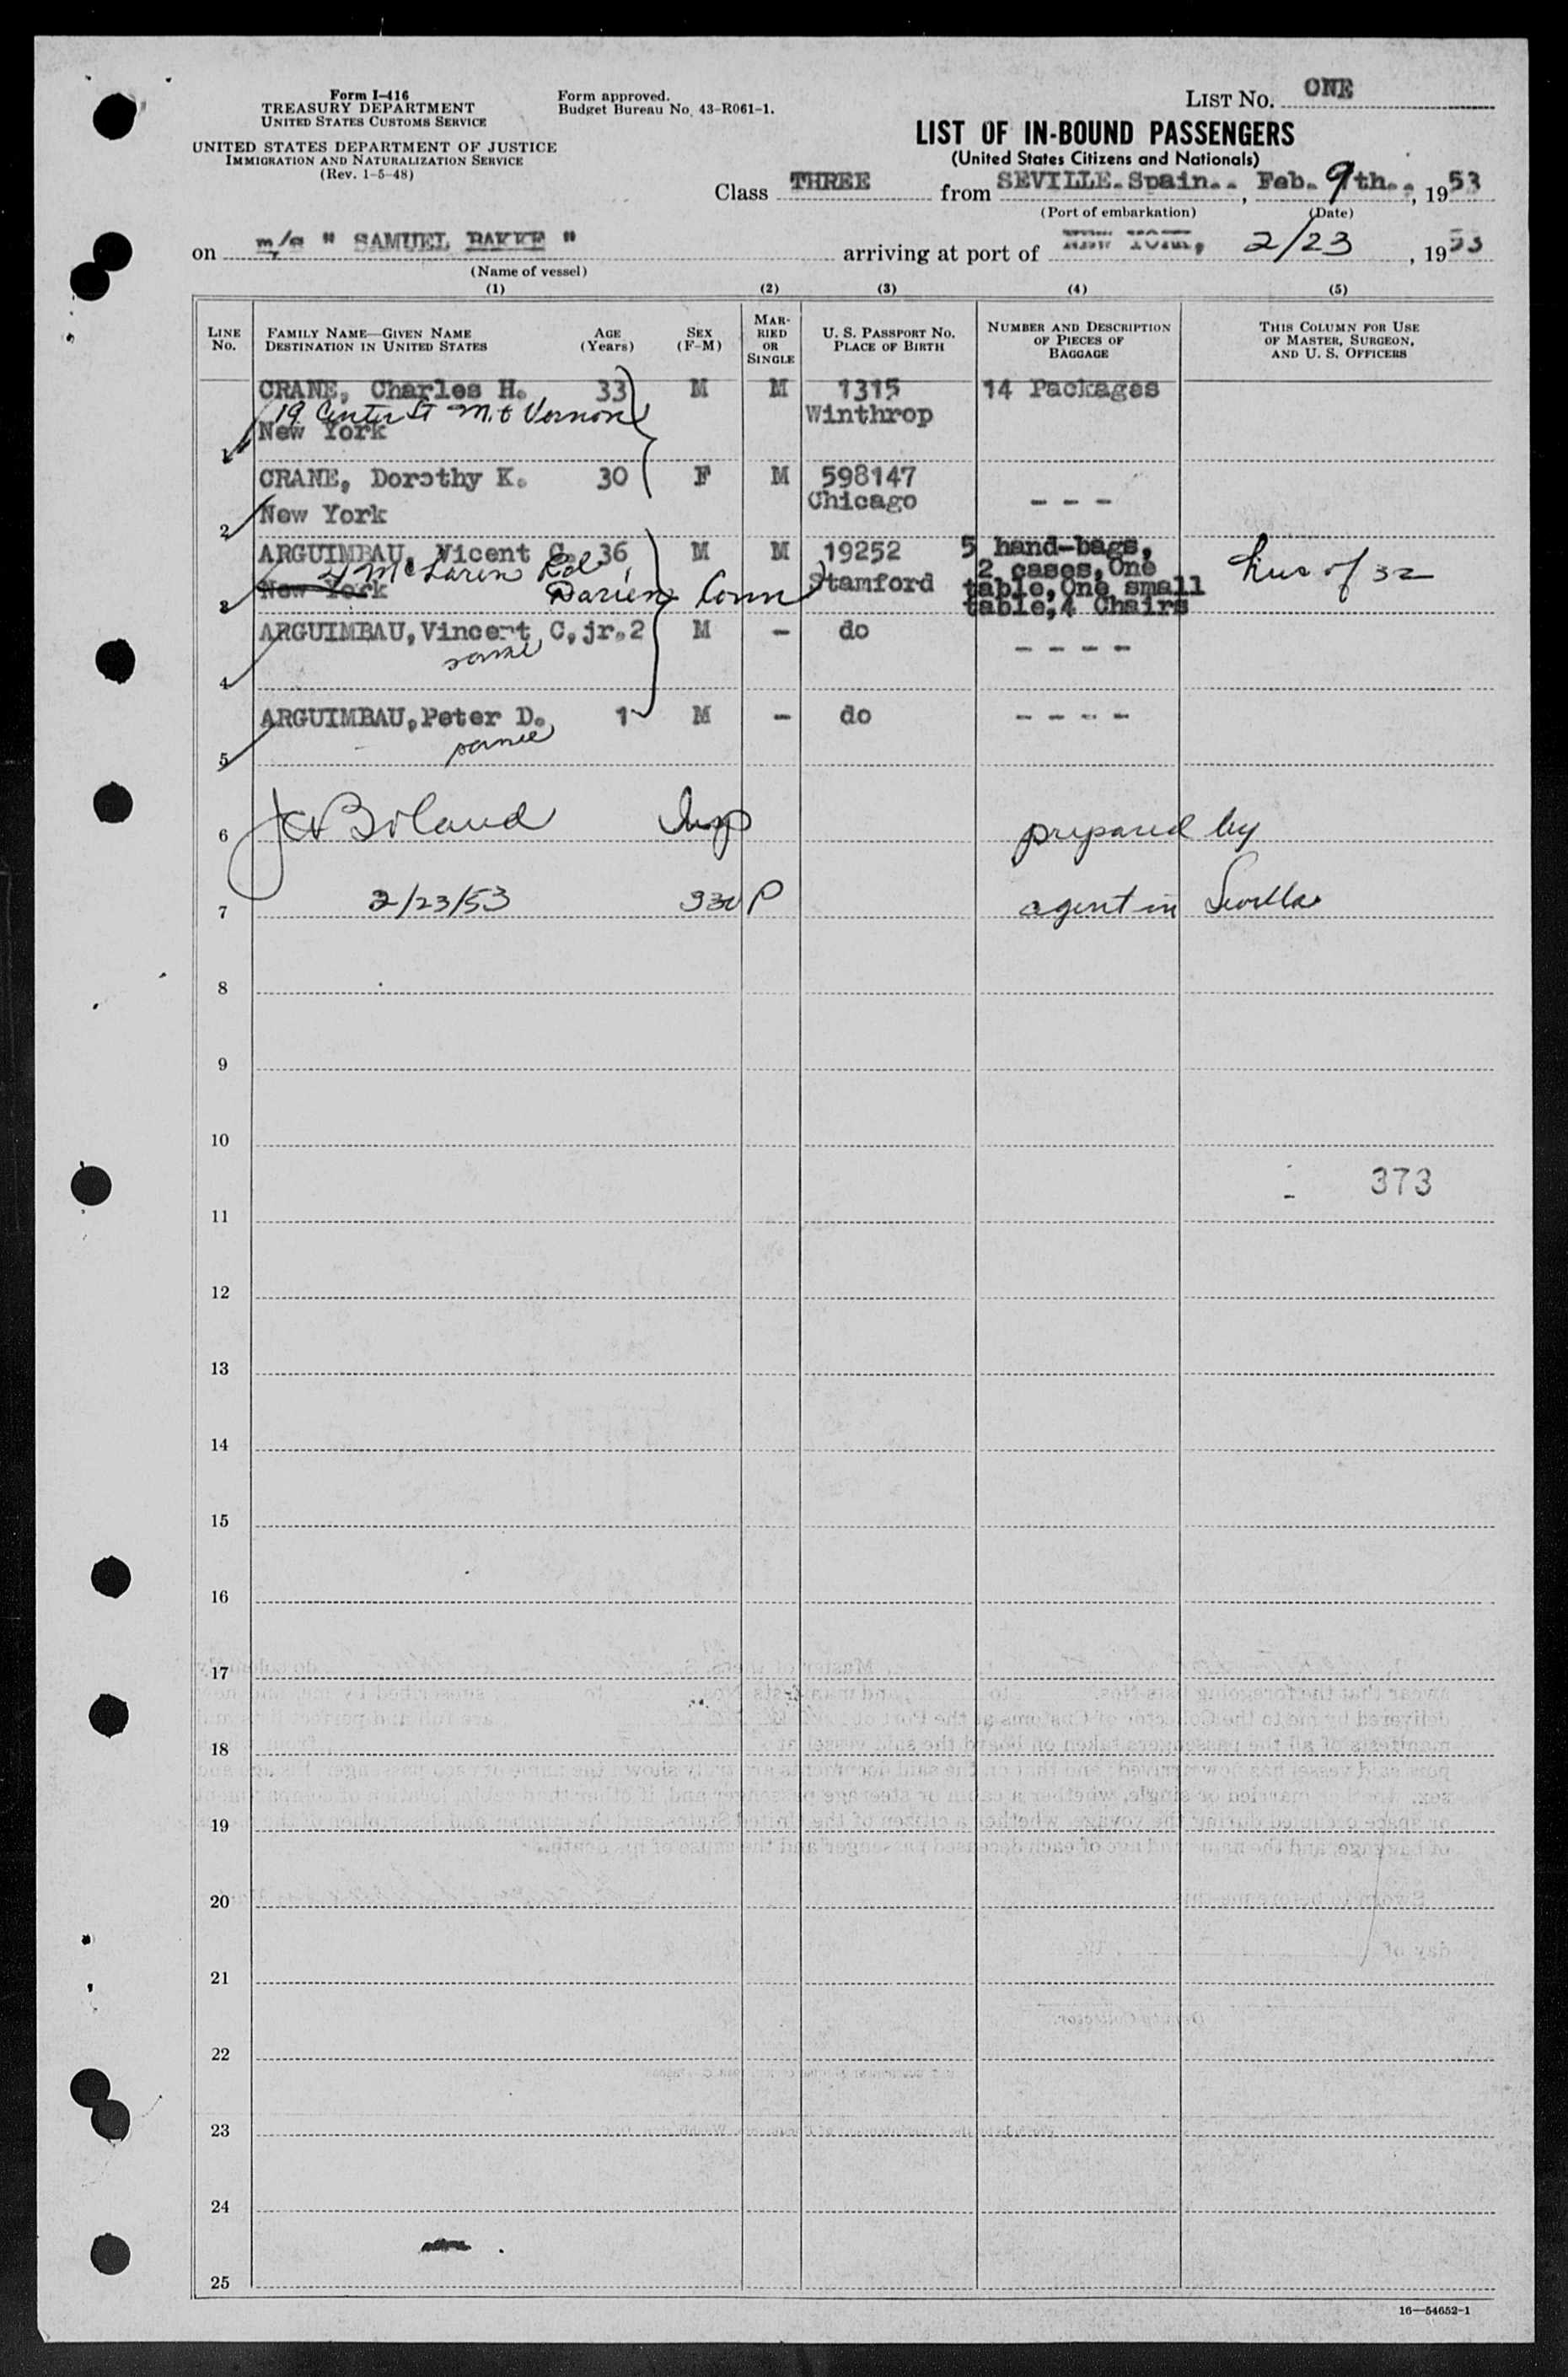 Form I-416
TREASURY DEPARTMENT
UNITED STATES CUSTOMS SERVICE
UNITED STATES DEPARTMENT OF JUSTICE
IMMIGRATION AND NATURALIZATION SERVICE
(Rev. 1-5-48)
Form approved.
Budget Bureau No. 43-R061-1.
LIST NO. ONE
LIST OF IN-BOUND PASSENGERS
(United States Citizens and Nationals)
Class THREE from SEVILLE.Spain.. , Feb. 9th.. , 1953
(Port of embarkation) (Date)
on m/s " SAMUEL BAKKE " arriving at port of NEW YORK, 2/23 , 1953
(Name of vessel)
(1) (2) (3) (4) (5)
LINE No. FAMILY NAME—GIVEN NAME DESTINATION IN UNITED STATES AGE (Years) SEX (F-M) MARRIED OR SINGLE U. S. PASSPORT NO. PLACE OF BIRTH NUMBER AND DESCRIPTION OF PIECES OF BAGGAGE THIS COLUMN FOR USE OF MASTER, SURGEON, AND U. S. OFFICERS
CRANE, Charles H. 33 M M 1315 14 Packages
19 Center St Mt Vernon Winthrop
New York
1
CRANE, Dorothy K. 30 F M 598147
Chicago - - -
New York
2
ARGUIMBAU, Vicent C. 36 M M 19252 5 hand-bags,
4 McLaren Rd Stamford 2 cases, One
New York Darien Conn table, One small
3 table, 4 Chairs
ARGUIMBAU, Vincent C, jr. 2 M - do - - - -
same
4
ARGUIMBAU, Peter D. 1 M - do - - - -
same
5
6 Boland Insp prepared by
7 2/23/53 330 P agent in Sevilla
8
9
10
373
11
12
13
14
15
16
17
18
19
20
21
22
23
24
25
16—54652-1